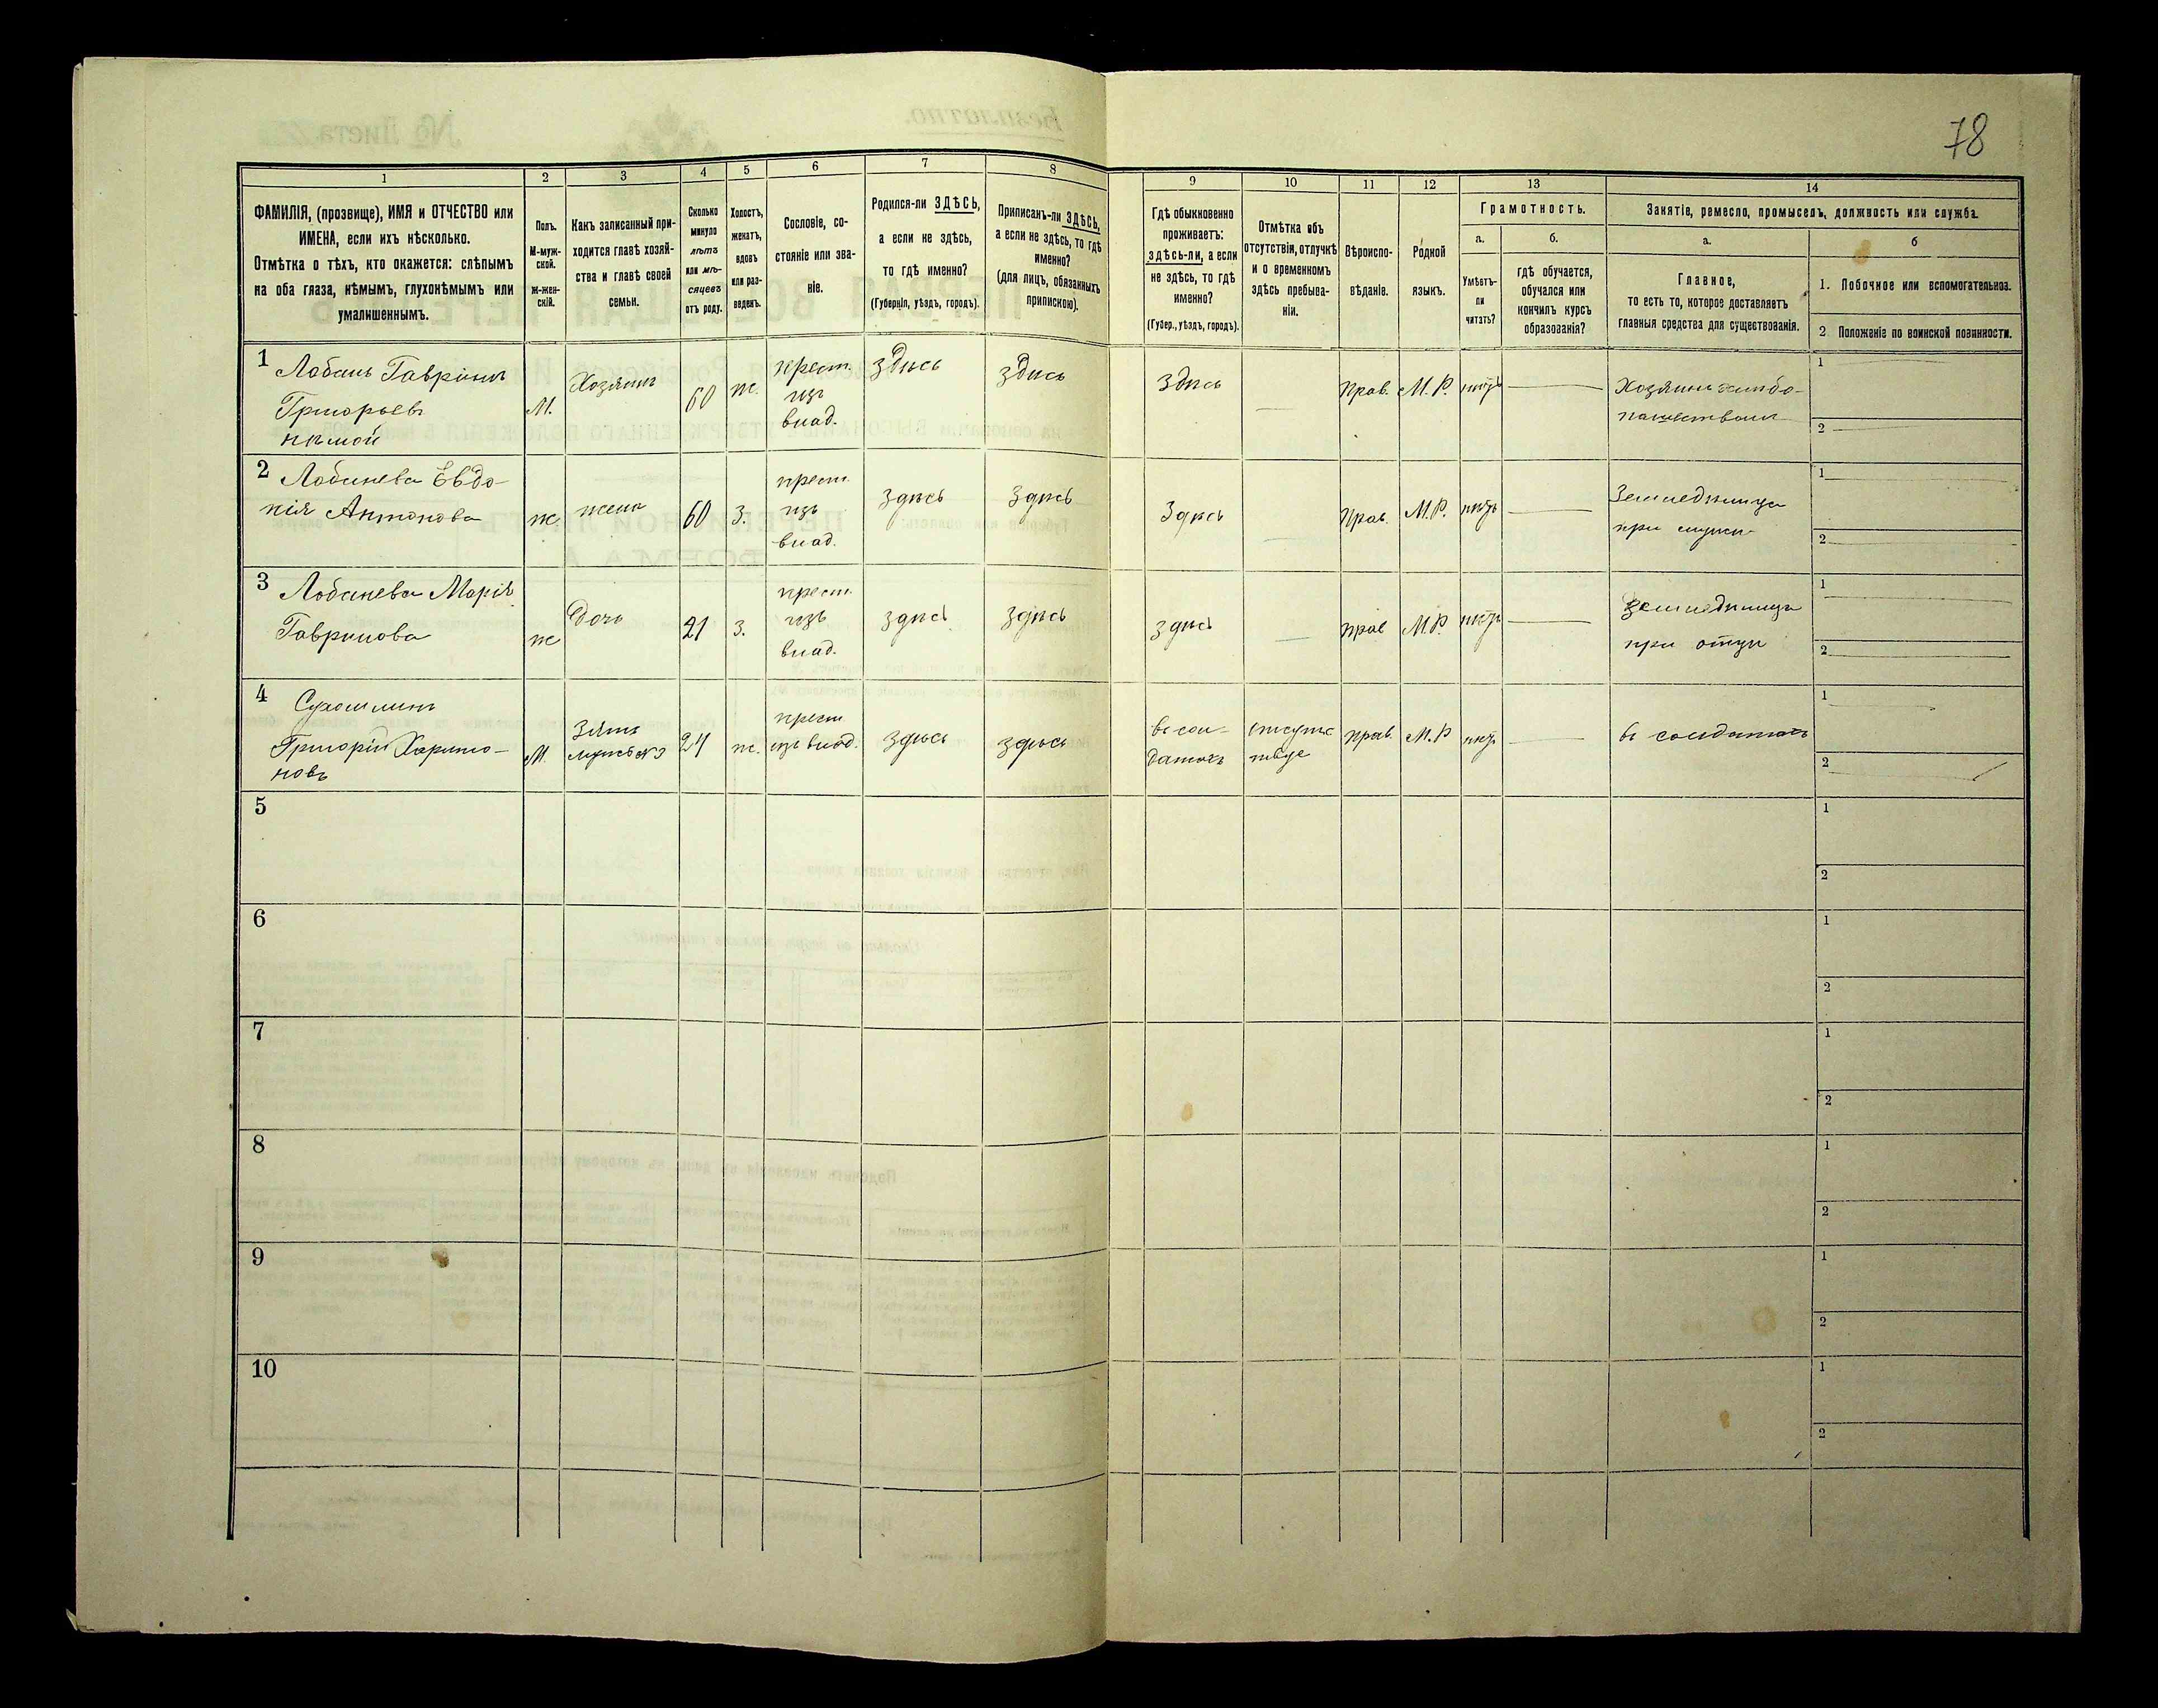 78
1
2
3
4
5
6
7
8
9
10
11
12
13
14
ФАМИЛІЯ, (прозвище), ИМЯ и ОТЧЕСТВО или
ИМЕНА, если ихъ нѣсколько.
Отмѣтка о тѣхъ, кто окажется: слѣпымъ
на оба глаза, нѣмымъ, глухонѣмымъ или
умалишеннымъ.
Полъ.
М-муж-
ской.
Ж-жен-
скій.
Какъ записанный при-
ходится главѣ хозяй-
ства и главѣ своей
семьи.
Сколько
минуло
лѣтъ
или мѣ-
сяцевъ
отъ роду.
Холостъ,
женатъ,
вдовъ
или раз-
веденъ.
Сословіе, со-
стояніе или зва-
ніе.
Родился-ли ЗДѢСЬ,
а если не здѣсь,
то гдѣ именно?
(Губернія, уѣздъ, городъ).
Приписанъ-ли ЗДѢСЬ,
а если не здѣсь, то гдѣ
именно?
(для лицъ, обязанныхъ
припискою).
Гдѣ обыкновенно
проживаетъ:
здѣсь-ли, а если
не здѣсь, то гдѣ
именно?
(Губер., уѣздъ, городъ).
Отмѣтка объ
отсутствіи, отлучкѣ
и о временномъ
здѣсь пребыва-
ніи.
Вѣроиспо-
вѣданіе.
Родной
языкъ.
Грамотность.
а.
Умѣетъ-
ли
читать?
б.
гдѣ обучается,
обучался или
кончилъ курсъ
образованія?
Занятіе, ремесло, промыселъ, должность или служба.
а.
Главное,
то есть то, которое доставляетъ
главныя средства для существованія.
б
1. Побочное или вспомогательное.
2. Положеніе по воинской повинности.
1 Лобань Гавріилъ
Григорьевъ
нѣмой
М.
Хозяинъ
60
ж.
крест.
изъ
влад.
здѣсь
здѣсь
здѣсь
—
прав.
М.Р.
нѣтъ
—
Хозяинъ хлѣбо-
пашествомъ
1
2
2 Лобанева Евдо-
кія Антонова
ж.
жена
60
з.
крест.
изъ
влад.
здѣсь
здѣсь
здѣсь
—
прав.
М.Р.
нѣтъ
—
Земледѣлица
при мужѣ
1
2
3 Лобанева Марія
Гаврилова
ж
дочь
21
з.
крест.
изъ
влад.
здѣсь
здѣсь
здѣсь
—
прав
М.Р.
нѣтъ
—
Земледѣлица
при отцѣ
1
2
4
Григорій Харито-
новъ
М.
Зять
24
ж.
крест
изъ влад.
здѣсь
здѣсь
въ сол-
датахъ
прав.
М.Р
нѣтъ
—
въ солдатахъ
1
2
5
1
2
6
1
2
7
1
2
8
1
2
9
1
2
10
1
2